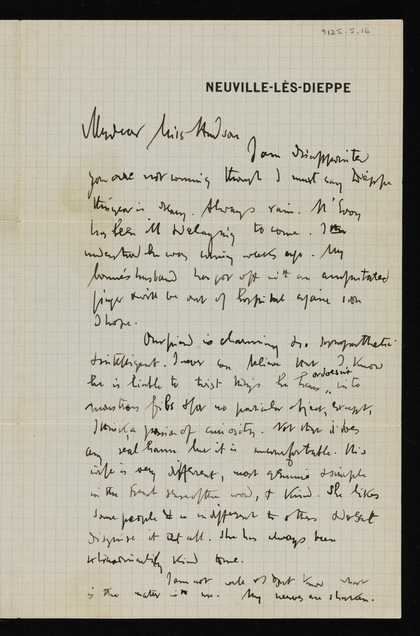 9125.5.16
NEUVILLE-LÈS-DIEPPE
My dear Miss Hudson
I am disappointed
you are not coming though I must say Dieppe
this year is dreary. Always rain. M'Evoy
has been ill & delaying to come. I
understand he was coming weeks ago. My
bonne's husband has got off with an amputated
finger & will be out of hospital again soon
I hope.
Our friend is charming & so sympathetic
& intelligent. I never can believe what I know
he is liable to twist things he hears or doesn't into
monstrous fibs & for no particular object, except,
I think, a passion of curiosity. Not that it does
any real harm but it is uncomfortable. His
wife is very different, most genuine & simple
in the best sense of the word, & kind. She likes
some people & is indifferent to others & doesn't
disguise it at all. She has always been
extraordinarily kind to me.
I am not well & don't know what
is the matter with me. My nerves are shaken.